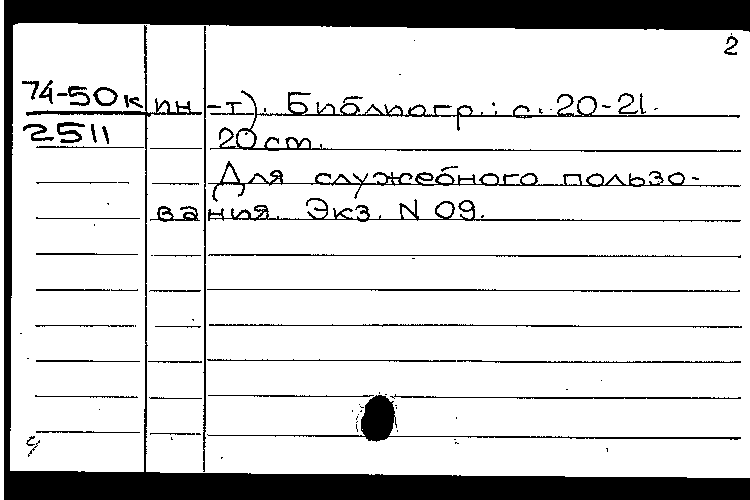 2
74-50к ин-т). Библиогр.: с. 20-21.
2511 20 cm.
Для служебного пользо-
вания. Экз. N 09.